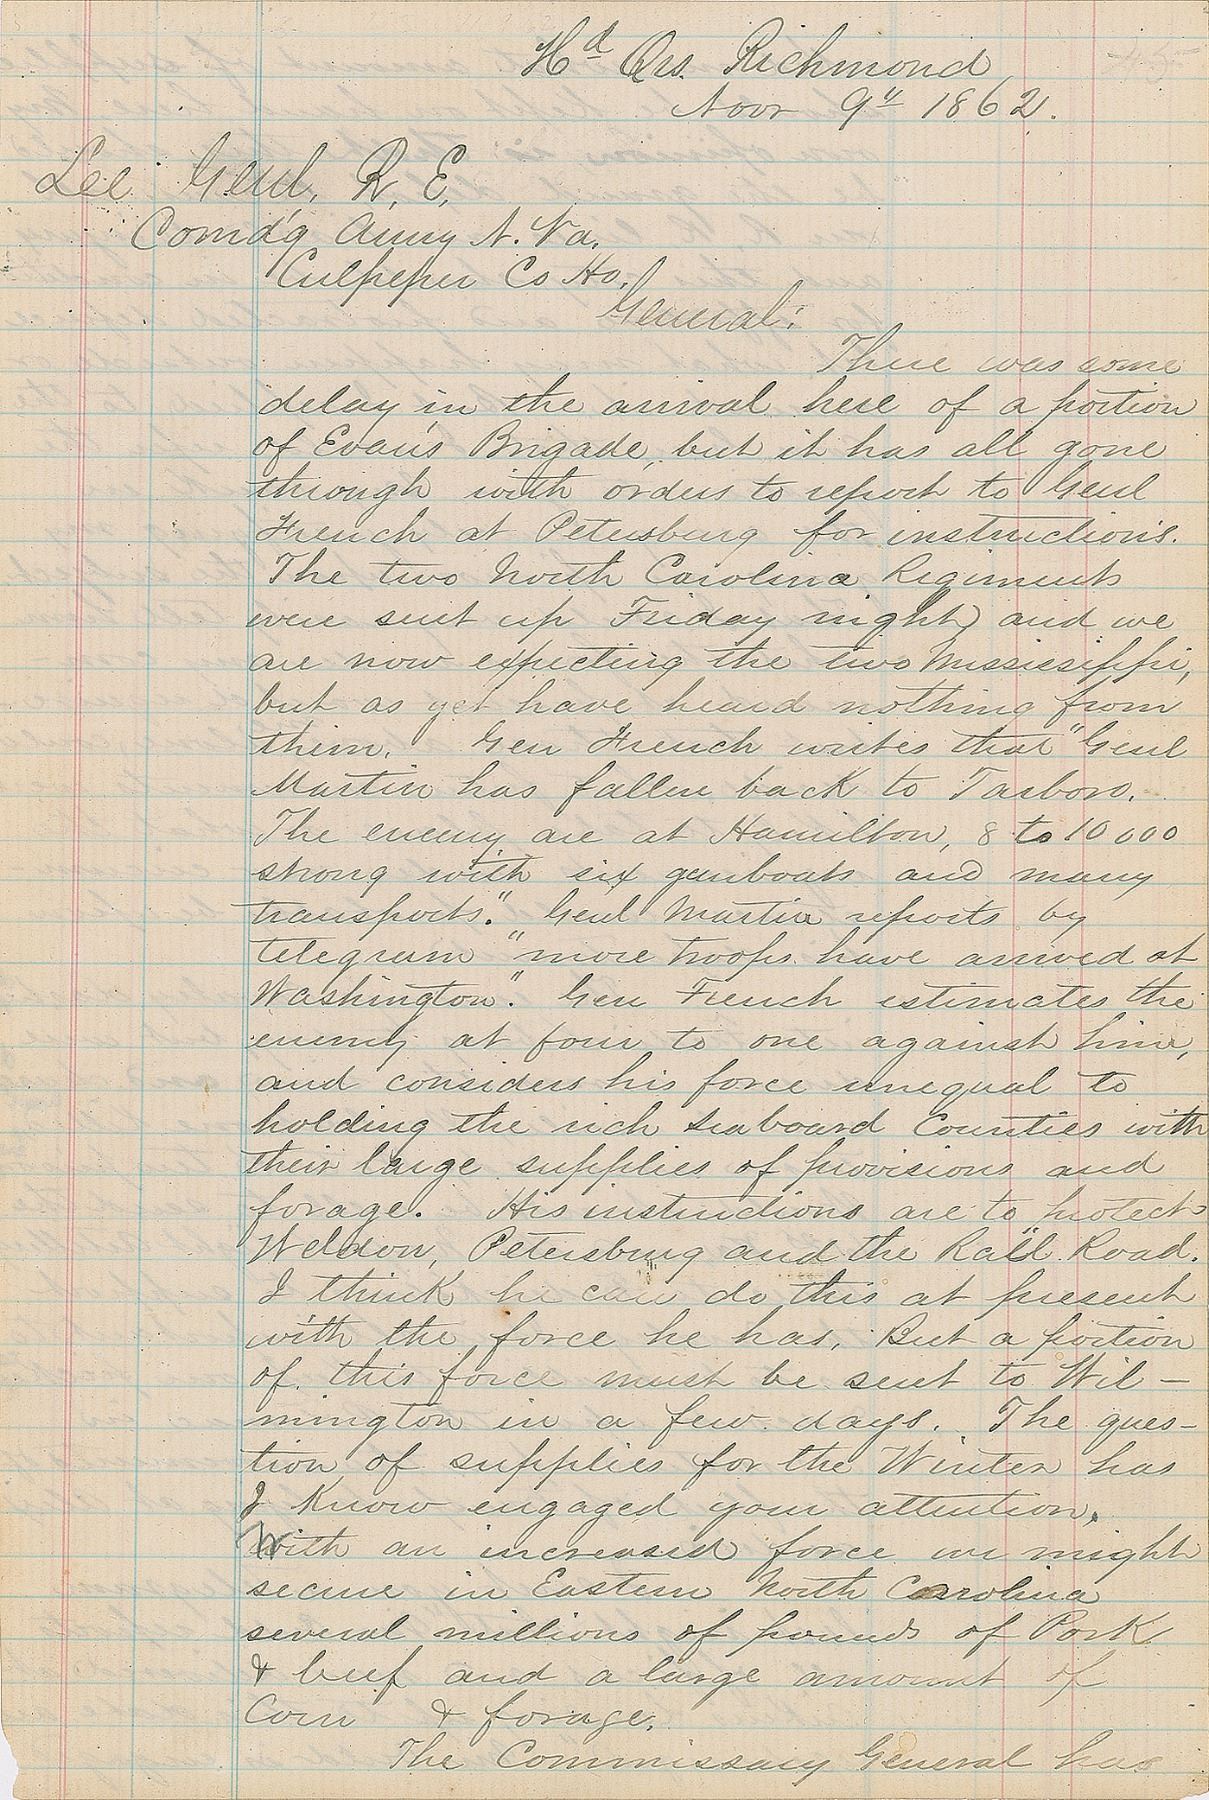 Hd Qrs. Richmond
Novr 9th 1862.
Lee Genl. R. E.
Comd'g Army N. Va.
Culpeper Co Ho.
General:
There was some
delay in the arrival here of a portion
of Evan's Brigade, but it has all gone
through with orders to report to Genl
French at Petersburg for instructions.
The two North Carolina Regiments
were sent up Friday night, and we
are now expecting the two Mississippi,
but as yet have heard nothing from
them. Gen French writes that "Genl
Martin has fallen back to Tarboro.
The enemy are at Hamilton, 8 to 10000
strong with six gunboats and many
transports." Genl Martin reports by
telegram "more troops have arrived at
Washington". Gen French estimates the
enemy at four to one against him,
and considers his force unequal to
holding the rich seaboard Counties with
their large supplies of provisions and
forage. His instructions are to protect
Weldon, Petersburg and the Rail Road.
I think he can do this at present
with the force he has. But a portion
of this force must be sent to Wil-
mington in a few days. The ques-
tion of supplies for the Winter has
I know engaged your attention.
With an increased force we might
secure in Eastern North Carolina
several millions of pounds of Pork
& beef and a large amount of
Corn & forage.
The Commissary General has